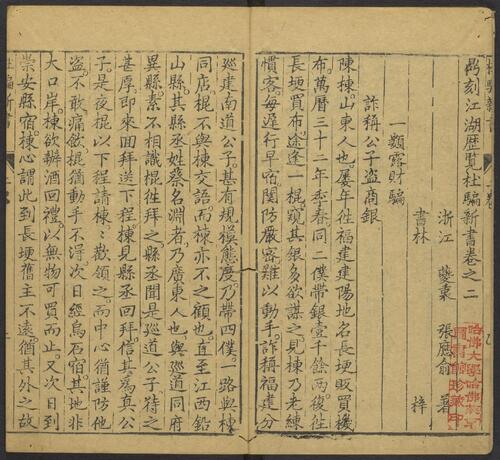 鼎刻江湖歷覽杜騙新書卷之二
浙江 夔衷 張應俞 著
書林 梓
一類露財騙
詐稱公子盜商銀
陳棟山東人也屢年往福建建陽地名長埂販買機
布萬曆三十二年季春同二僕帶銀壹千餘两復往
長埂買布途逢一棍窺其銀多欲謀之見棟乃老練
慣客每遲行早宿関防嚴宻難以動手詐稱福建分
廵建南道公子甚有規模態度乃帶四僕一路與棟
同店棍不與棟交語而棟亦不之顧也直至江西鉛
山縣其縣丞姓蔡名淵者乃廣東人也與廵道同府
異縣素不相識棍徃拜之縣丞聞是廵道公子待之
甚厚即來回拜送下程棟見縣丞回拜信其爲真公
子是夜棍以下程請棟棟歡領之而中心猶謹防他
盗不敢痛飲棍猶動手不得次日經烏石宿其地非
大口岸棟欲辦酒回禮以無物可買而止又次日到
崇安縣宿棟心謂此到長埂舊主不遠猶其外之故
哈佛大學哈佛燕京圖書館珍藏印